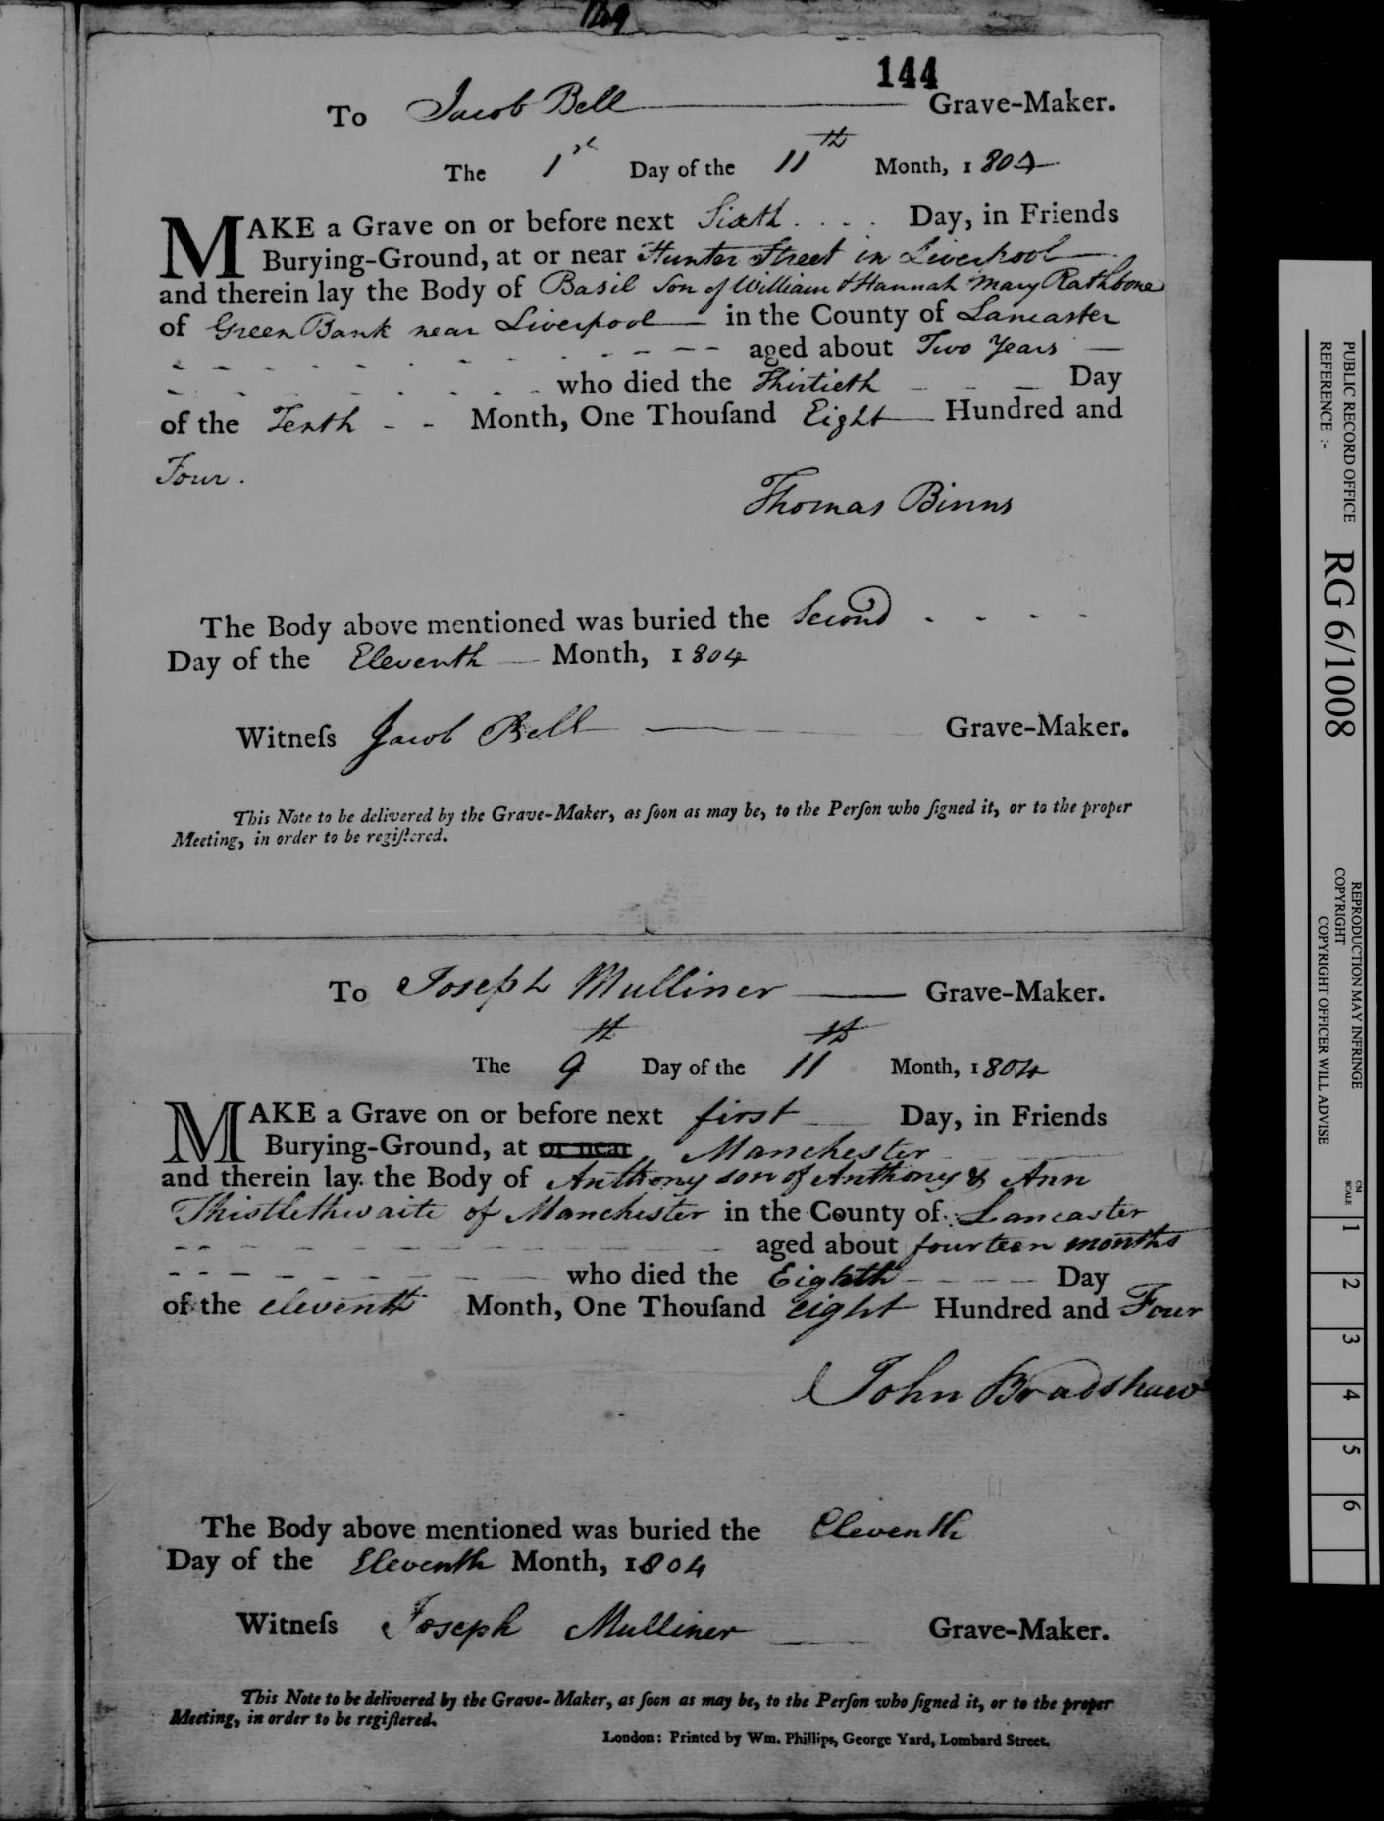 149
144
To Jacob Bell Grave-Maker.
The 1st Day of the 11th Month, 1804
MAKE a Grave on or before next Sixth . . . . Day, in Friends
Burying-Ground, at or near Hunter Street in Liverpool
and therein lay the Body of Basil Son of William & Hannah Mary Rathbone
of Green Bank near Liverpool in the County of Lancaster
aged about Two Years
who died the Thirtieth Day
of the Tenth - - Month, One Thouſand Eight Hundred and
Four.
Thomas Binns
The Body above mentioned was buried the Second - - - -
Day of the Eleventh Month, 1804
Witneſs Jacob Bell Grave-Maker.
This Note to be delivered by the Grave-Maker, as ſoon as may be, to the Perſon who ſigned it, or to the proper
Meeting, in order to be regiſtered.
To Joseph Mulliner Grave-Maker.
The 9th Day of the 11th Month, 1804
MAKE a Grave on or before next first Day, in Friends
Burying-Ground, at or near Manchester
and therein lay the Body of Anthony son of Anthony & Ann
Thistlethwaite of Manchester in the County of Lancaster
aged about fourteen months
who died the Eighth Day
of the eleventh Month, One Thouſand eight Hundred and Four
John Bradshaw
The Body above mentioned was buried the Eleventh
Day of the Eleventh Month, 1804
Witneſs Joseph Mulliner Grave-Maker.
This Note to be delivered by the Grave-Maker, as ſoon as may be, to the Perſon who ſigned it, or to the proper
Meeting, in order to be regiſtered.
London: Printed by Wm. Phillips, George Yard, Lombard Street.
PUBLIC RECORD OFFICE
REFERENCE :-
RG 6/1008
REPRODUCTION MAY INFRINGE
COPYRIGHT
COPYRIGHT OFFICER WILL ADVISE
CM
SCALE
1
2
3
4
5
6